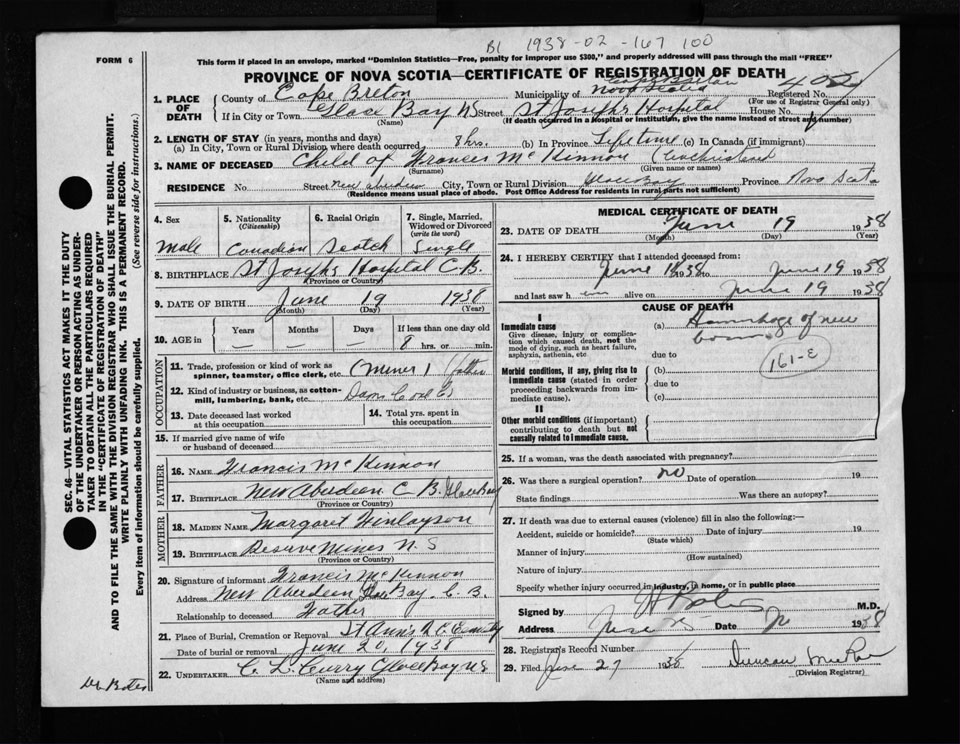 B1 1938-02-167 100
FORM 6
This form if placed in an envelope, marked "Dominion Statistics—Free, penalty for improper use $300," and properly addressed will pass through the mail "FREE"
PROVINCE OF NOVA SCOTIA—CERTIFICATE OF REGISTRATION OF DEATH
1. PLACE OF DEATH
County of Cape Breton Municipality of Cape Breton Nova Scotia Registered No.
(For use of Registrar General only)
If in City or Town Glace Bay NS Street St Josephs Hospital House No.
(Name) (If death occurred in a hospital or institution, give the name instead of street and number)
2. LENGTH OF STAY (in years, months and days)
(a) In City, Town or Rural Division where death occurred 8 hrs. (b) In Province Lifetime (c) In Canada (if immigrant)
3. NAME OF DECEASED Child of Francis McKinnon
(Surname) (Given name or names)
RESIDENCE No. Street New Aberdeen City, Town or Rural Division Glace Bay Province Nova Scotia
(Residence means usual place of abode. Post Office Address for residents in rural parts not sufficient)
4. Sex Male
5. Nationality (Citizenship) Canadian
6. Racial Origin Scotch
7. Single, Married, Widowed or Divorced (write the word) Single
8. BIRTHPLACE St Josephs Hospital C.B.
(Province or Country)
9. DATE OF BIRTH June 19 1938
(Month) (Day) (Year)
10. AGE in Years Months Days If less than one day old
8 hrs. or min.
OCCUPATION
11. Trade, profession or kind of work as spinner, teamster, office clerk, etc. (Miner) father
12. Kind of industry or business, as cotton-mill, lumbering, bank, etc. Dom Coal Co
13. Date deceased last worked at this occupation
14. Total yrs. spent in this occupation
15. If married give name of wife or husband of deceased
FATHER
16. NAME Francis McKinnon
17. BIRTHPLACE New Aberdeen C.B. Glace Bay
(Province or Country)
MOTHER
18. MAIDEN NAME Margaret Finlayson
19. BIRTHPLACE Reserve Mines N.S
(Province or Country)
20. Signature of informant Francis McKinnon
Address New Aberdeen Glace Bay. C.B.
Relationship to deceased Father
21. Place of Burial, Cremation or Removal St Ann's R.C. Cemetery
Date of burial or removal June 20, 1938
22. UNDERTAKER C. L. Curry Glace Bay NS
(Name and address)
MEDICAL CERTIFICATE OF DEATH
23. DATE OF DEATH June 19 1938
(Month) (Day) (Year)
24. I HEREBY CERTIFY that I attended deceased from:
June 1938 to June 19 1938
and last saw h alive on June 19 1938
CAUSE OF DEATH
I
Immediate cause
Give disease, injury or complication which caused death, not the mode of dying, such as heart failure, asphyxia, asthenia, etc
(a) Hemorrhage of new born
due to
161-E
Morbid conditions, if any, giving rise to immediate cause (stated in order proceeding backwards from immediate cause).
(b)
due to
(c)
II
Other morbid conditions (if important) contributing to death but not causally related to immediate cause.
25. If a woman, was the death associated with pregnancy?
26. Was there a surgical operation? no Date of operation 19
State findings Was there an autopsy?
27. If death was due to external causes (violence) fill in also the following:—
Accident, suicide or homicide? Date of injury 19
(State which)
Manner of injury
(How sustained)
Nature of injury
Specify whether injury occurred in industry, in home, or in public place
Signed by M.D.
Address Date 1938
28. Registrar's Record Number
29. Filed June 27 1938 Duncan McRae
(Division Registrar)
SEC. 46—VITAL STATISTICS ACT MAKES IT THE DUTY
OF THE UNDERTAKER OR PERSON ACTING AS UNDERTAKER TO OBTAIN ALL THE PARTICULARS REQUIRED
IN THE "CERTIFICATE OF REGISTRATION OF DEATH"
AND TO FILE THE SAME WITH THE DIVISION REGISTRAR WHO SHALL ISSUE THE BURIAL PERMIT.
WRITE PLAINLY WITH UNFADING INK. THIS IS A PERMANENT RECORD.
Every item of information should be carefully supplied. (See reverse side for instructions.)